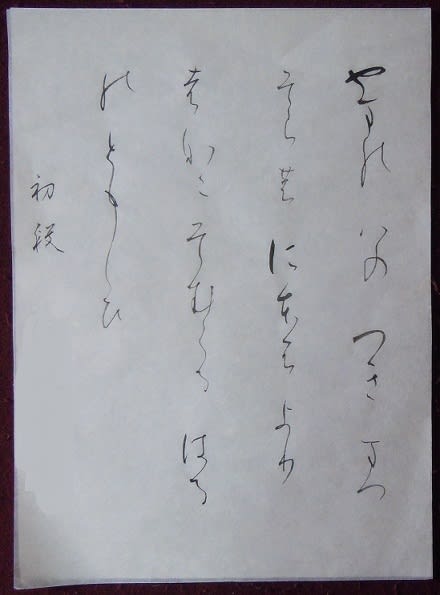 やまのはのつきまつ
そらのにほふより
はなにそむくるはる
のともしひ
初段